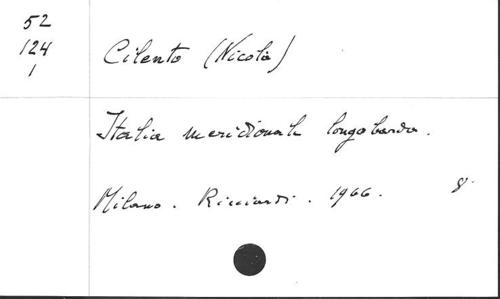 52
124
1
Cilento (Nicola)
Italia meridionale longobarda.
Milano. Ricciardi. 1966. 8.